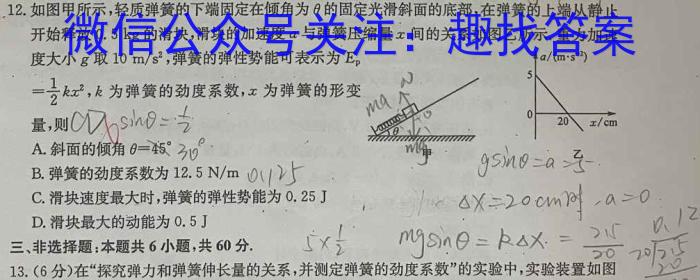 12. 如图甲所示,轻质弹簧的下端固定在倾角为 θ 的固定光滑斜面的底部,在弹簧的上端从静止
开始释放 0.5 kg 的滑块,滑块的加速度 a 与弹簧压缩量 x 间的关系如图乙所示,重力加速
微信公众号关注:趣找答案
度大小 g 取 10 m/s²,弹簧的弹性势能可表示为 Eₚ
=½kx²,k 为弹簧的劲度系数,x 为弹簧的形变
量,则 sinθ=½
A. 斜面的倾角 θ=45° 30°
B. 弹簧的劲度系数为 12.5 N/m 0.125
C. 滑块速度最大时,弹簧的弹性势能为 0.25 J
D. 滑块最大的动能为 0.5 J
a/(m·s⁻²)
5
0
20
x/cm
mg
N
θ
甲
mg
乙
gsinθ=a=5
Δx=20cm时,a=0
5×½
mgsinθ=kΔx=2.5/20
三、非选择题:本题共 6 小题,共 60 分.
13. (6 分)在“探究弹力和弹簧伸长量的关系,并测定弹簧的劲度系数”的实验中,实验装置如图